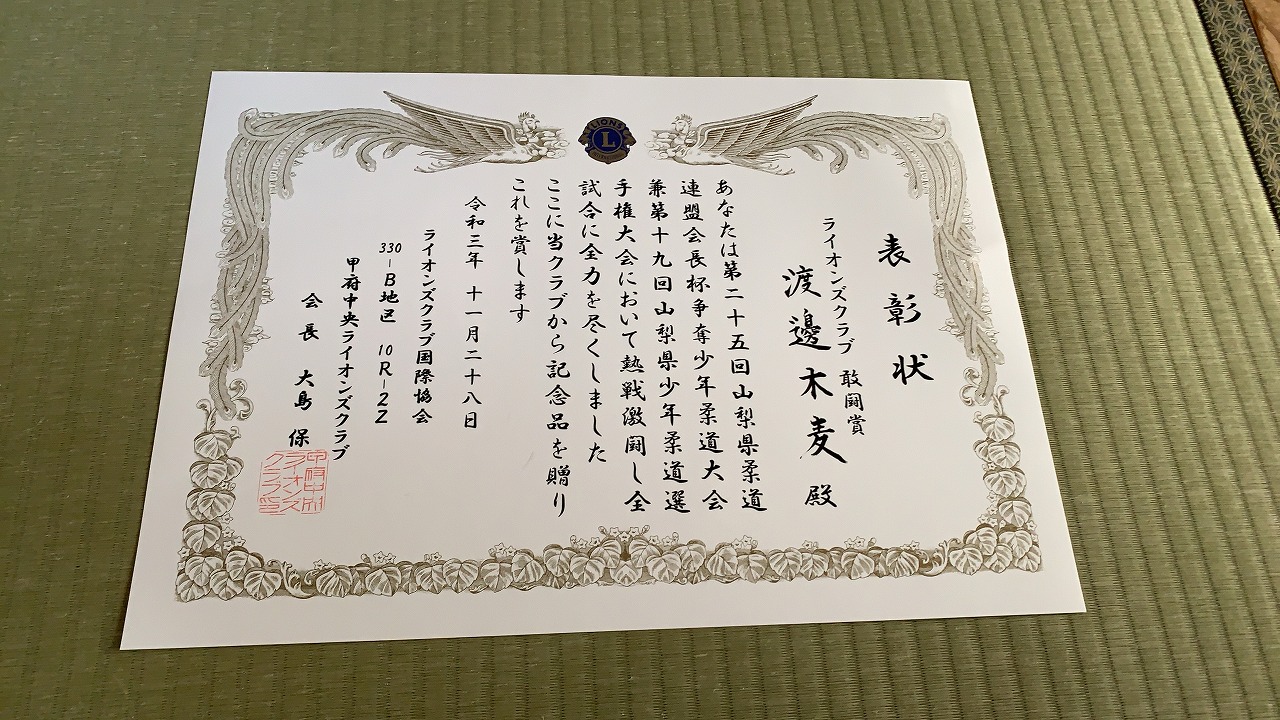 LIONS
L
表彰状
ライオンズクラブ 敢闘賞
渡邊木麦 殿
あなたは第二十五回山梨県柔道
連盟会長杯争奪少年柔道大会
兼第十九回山梨県少年柔道選
手権大会において熱戦激闘し全
試合に全力を尽くしました
ここに当クラブから記念品を贈り
これを賞します
令和三年 十一月二十八日
ライオンズクラブ国際協会
330-B地区 10R-2Z
甲府中央ライオンズクラブ
会長 大島 保
甲府中央
ライオンズ
クラブ印